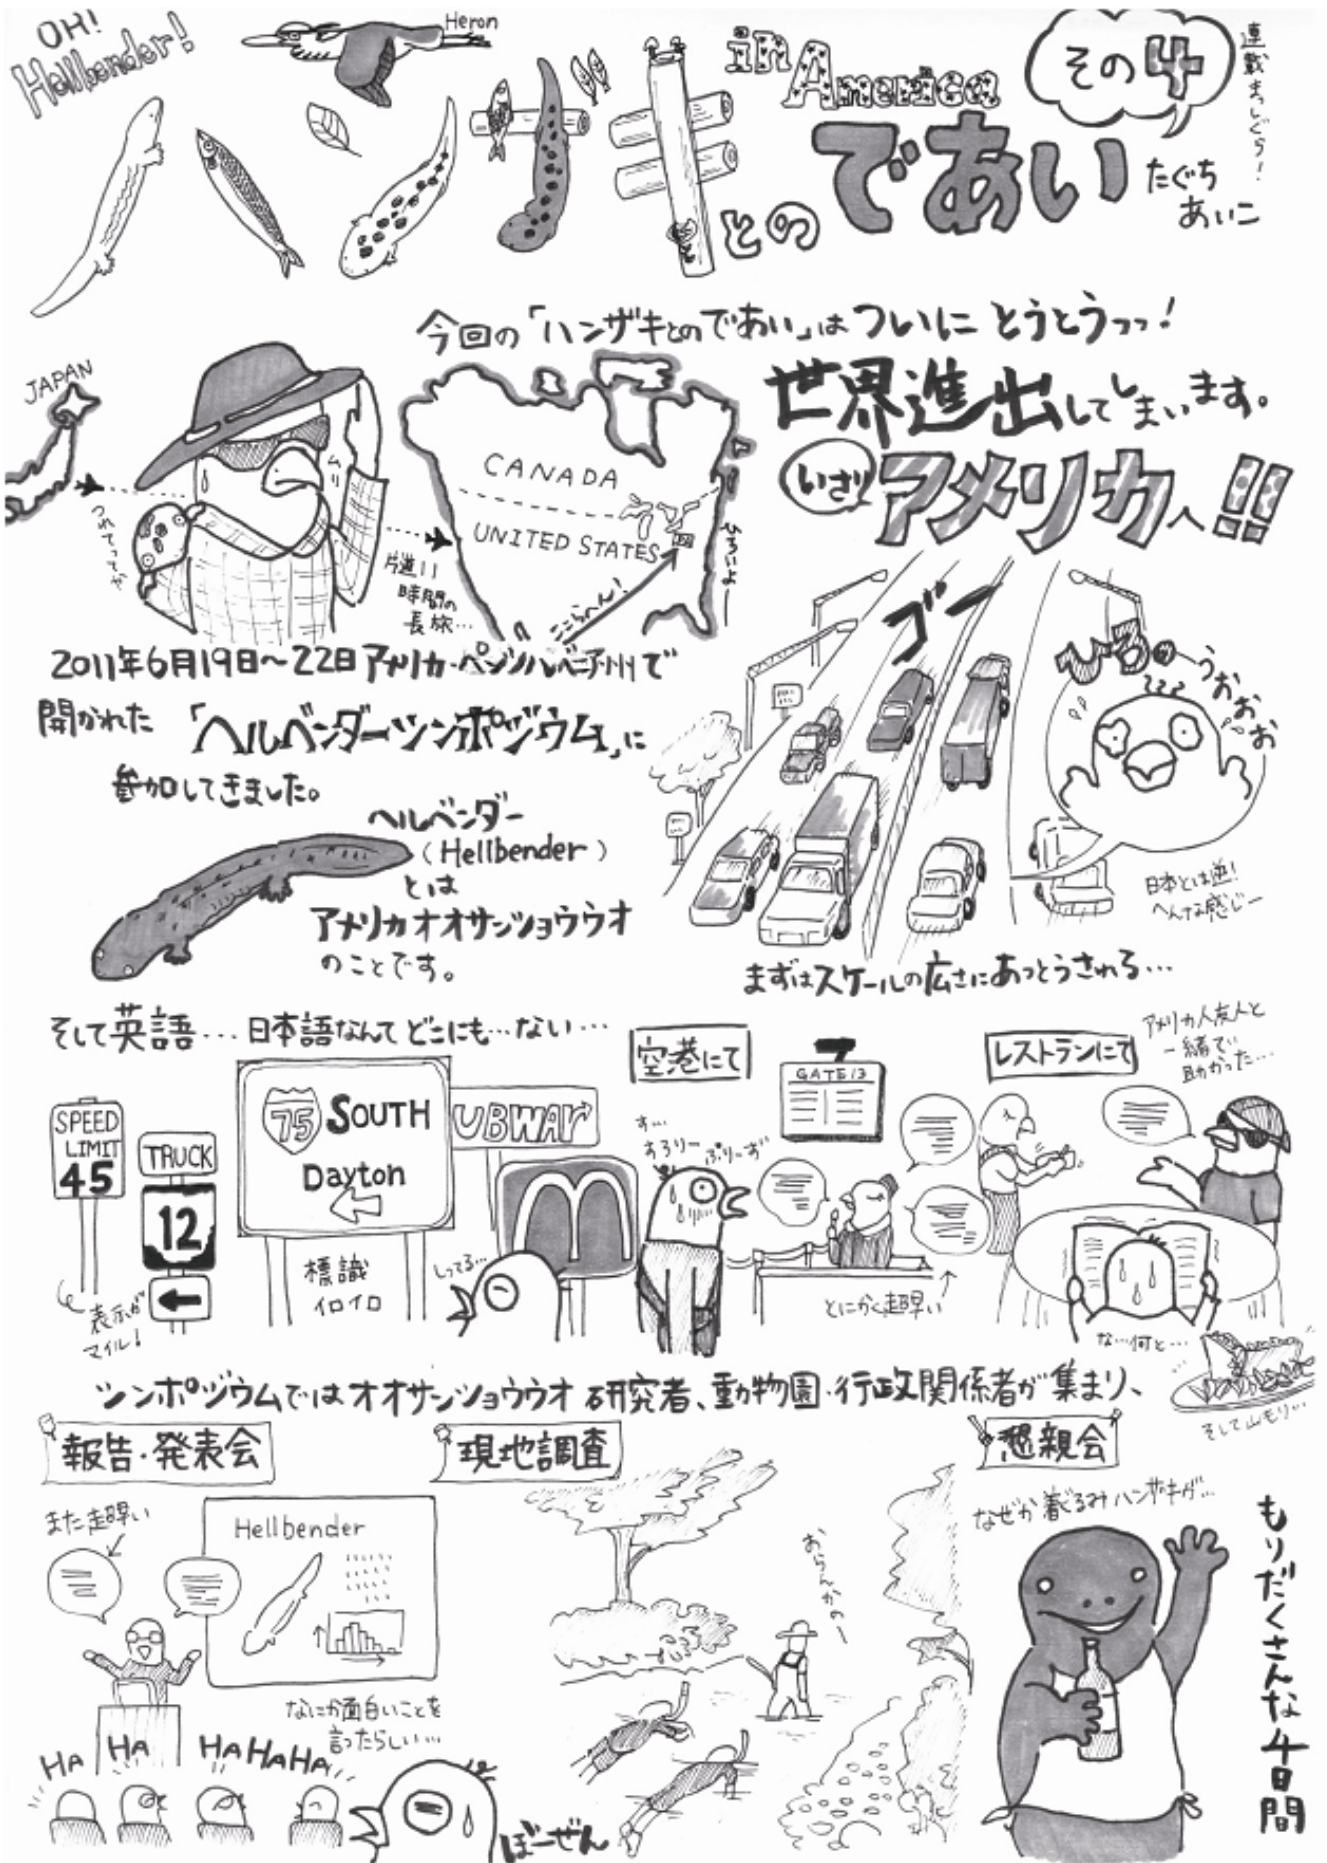 OH!
Hellbender!
Heron
ハンザキとの
in America
であい
その4
連載まっしぐら!
たぐち
あいこ
今回の「ハンザキとのであい」は ついに とうとうっっ!
世界進出してしまいます。
いざ アメリカへ!!
JAPAN
つれてってや
片道11
時間の
長旅…
CANADA
UNITED STATES
ここらへん!
ひろいよー
2011年6月19日〜22日 アメリカ・ペンシルベニア州で
開かれた「ヘルベンダーシンポジウム」に
参加してきました。
ヘルベンダー
(Hellbender)
とは
アメリカオオサンショウウオ
のことです。
ゴー
ひろっ
うおおおお
日本とは逆!
へんな感じー
まずはスケールの広さにあっとうされる…
そして英語…日本語なんてどこにも…ない…
SPEED
LIMIT
45
表示が
マイル!
TRUCK
12
75 SOUTH
Dayton
標識
イロイロ
UBWAY
しってる…
空港にて
す…
すろりー ぷりーず
GATE 13
とにかく超早い
レストランにて
アメリカ人友人と
一緒で
助かった…
な…何と…
そして山モリ…
シンポジウムではオオサンショウウオ研究者、動物園・行政関係者が集まり、
報告・発表会
また超早い
Hellbender
なにか面白いことを
言ったらしい…
HA HA HA HA HA
ぼーぜん
現地調査
おらんかのー
懇親会
なぜか着ぐるみハンザキが…
もりだくさんな4日間